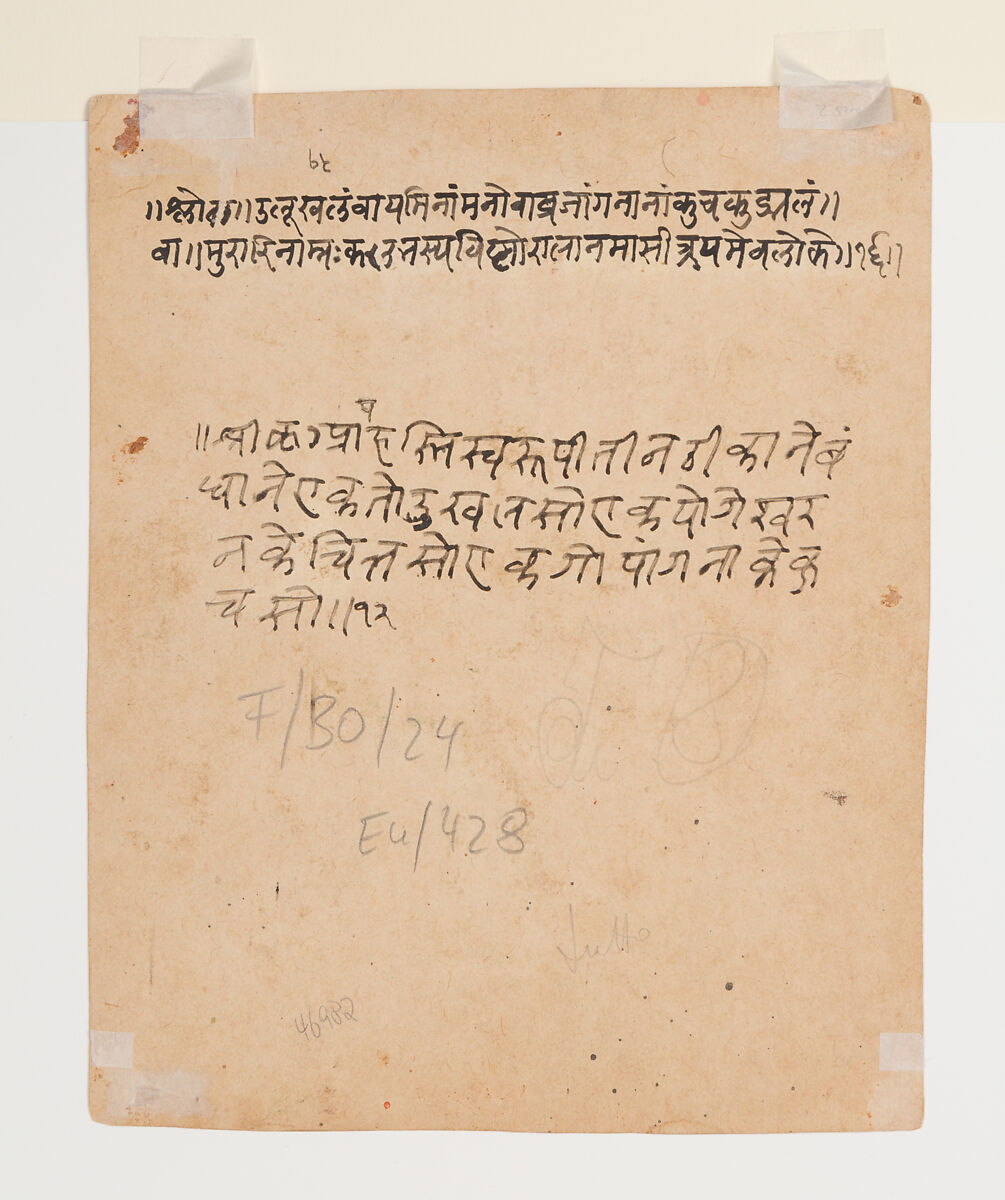 ७९
॥श्लोक॥उलूखलंवायमिनांमनोवाव्रजांगनानांकुचकुड्मलं॥
वा॥मुरारिनाम्नःकलभस्यविष्णोरालानमासीत्रयमेवलोके॥१६॥
तीनठीकानेबं
धानेएकतोउखलसोएकयोगेस्वर
नकेचित्तसोएकगोपांगनाकेकु
चसो॥१२
F/BO/24
Eu/428
46982